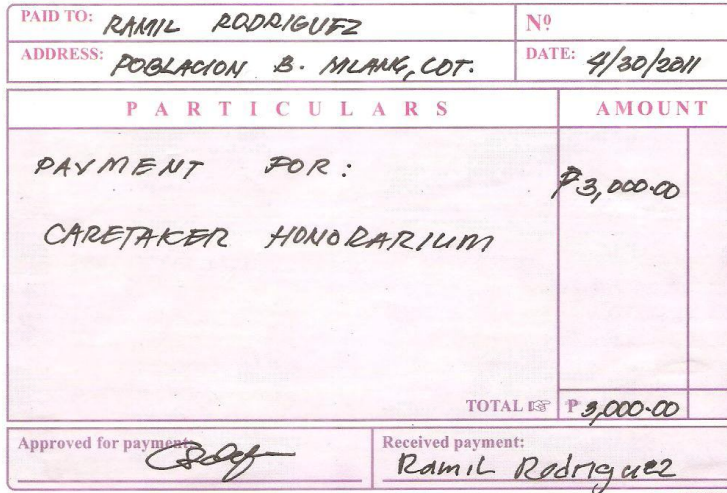 PAID TO: RAMIL RODRIGUEZ
Nº
ADDRESS: POBLACION B. MLANG, COT.
DATE: 4/30/2011
PARTICULARS AMOUNT
PAYMENT FOR: ₱3,000.00
CARETAKER HONORARIUM
TOTAL ☞ ₱3,000.00
Approved for payment:
Received payment:
Ramil Rodriguez